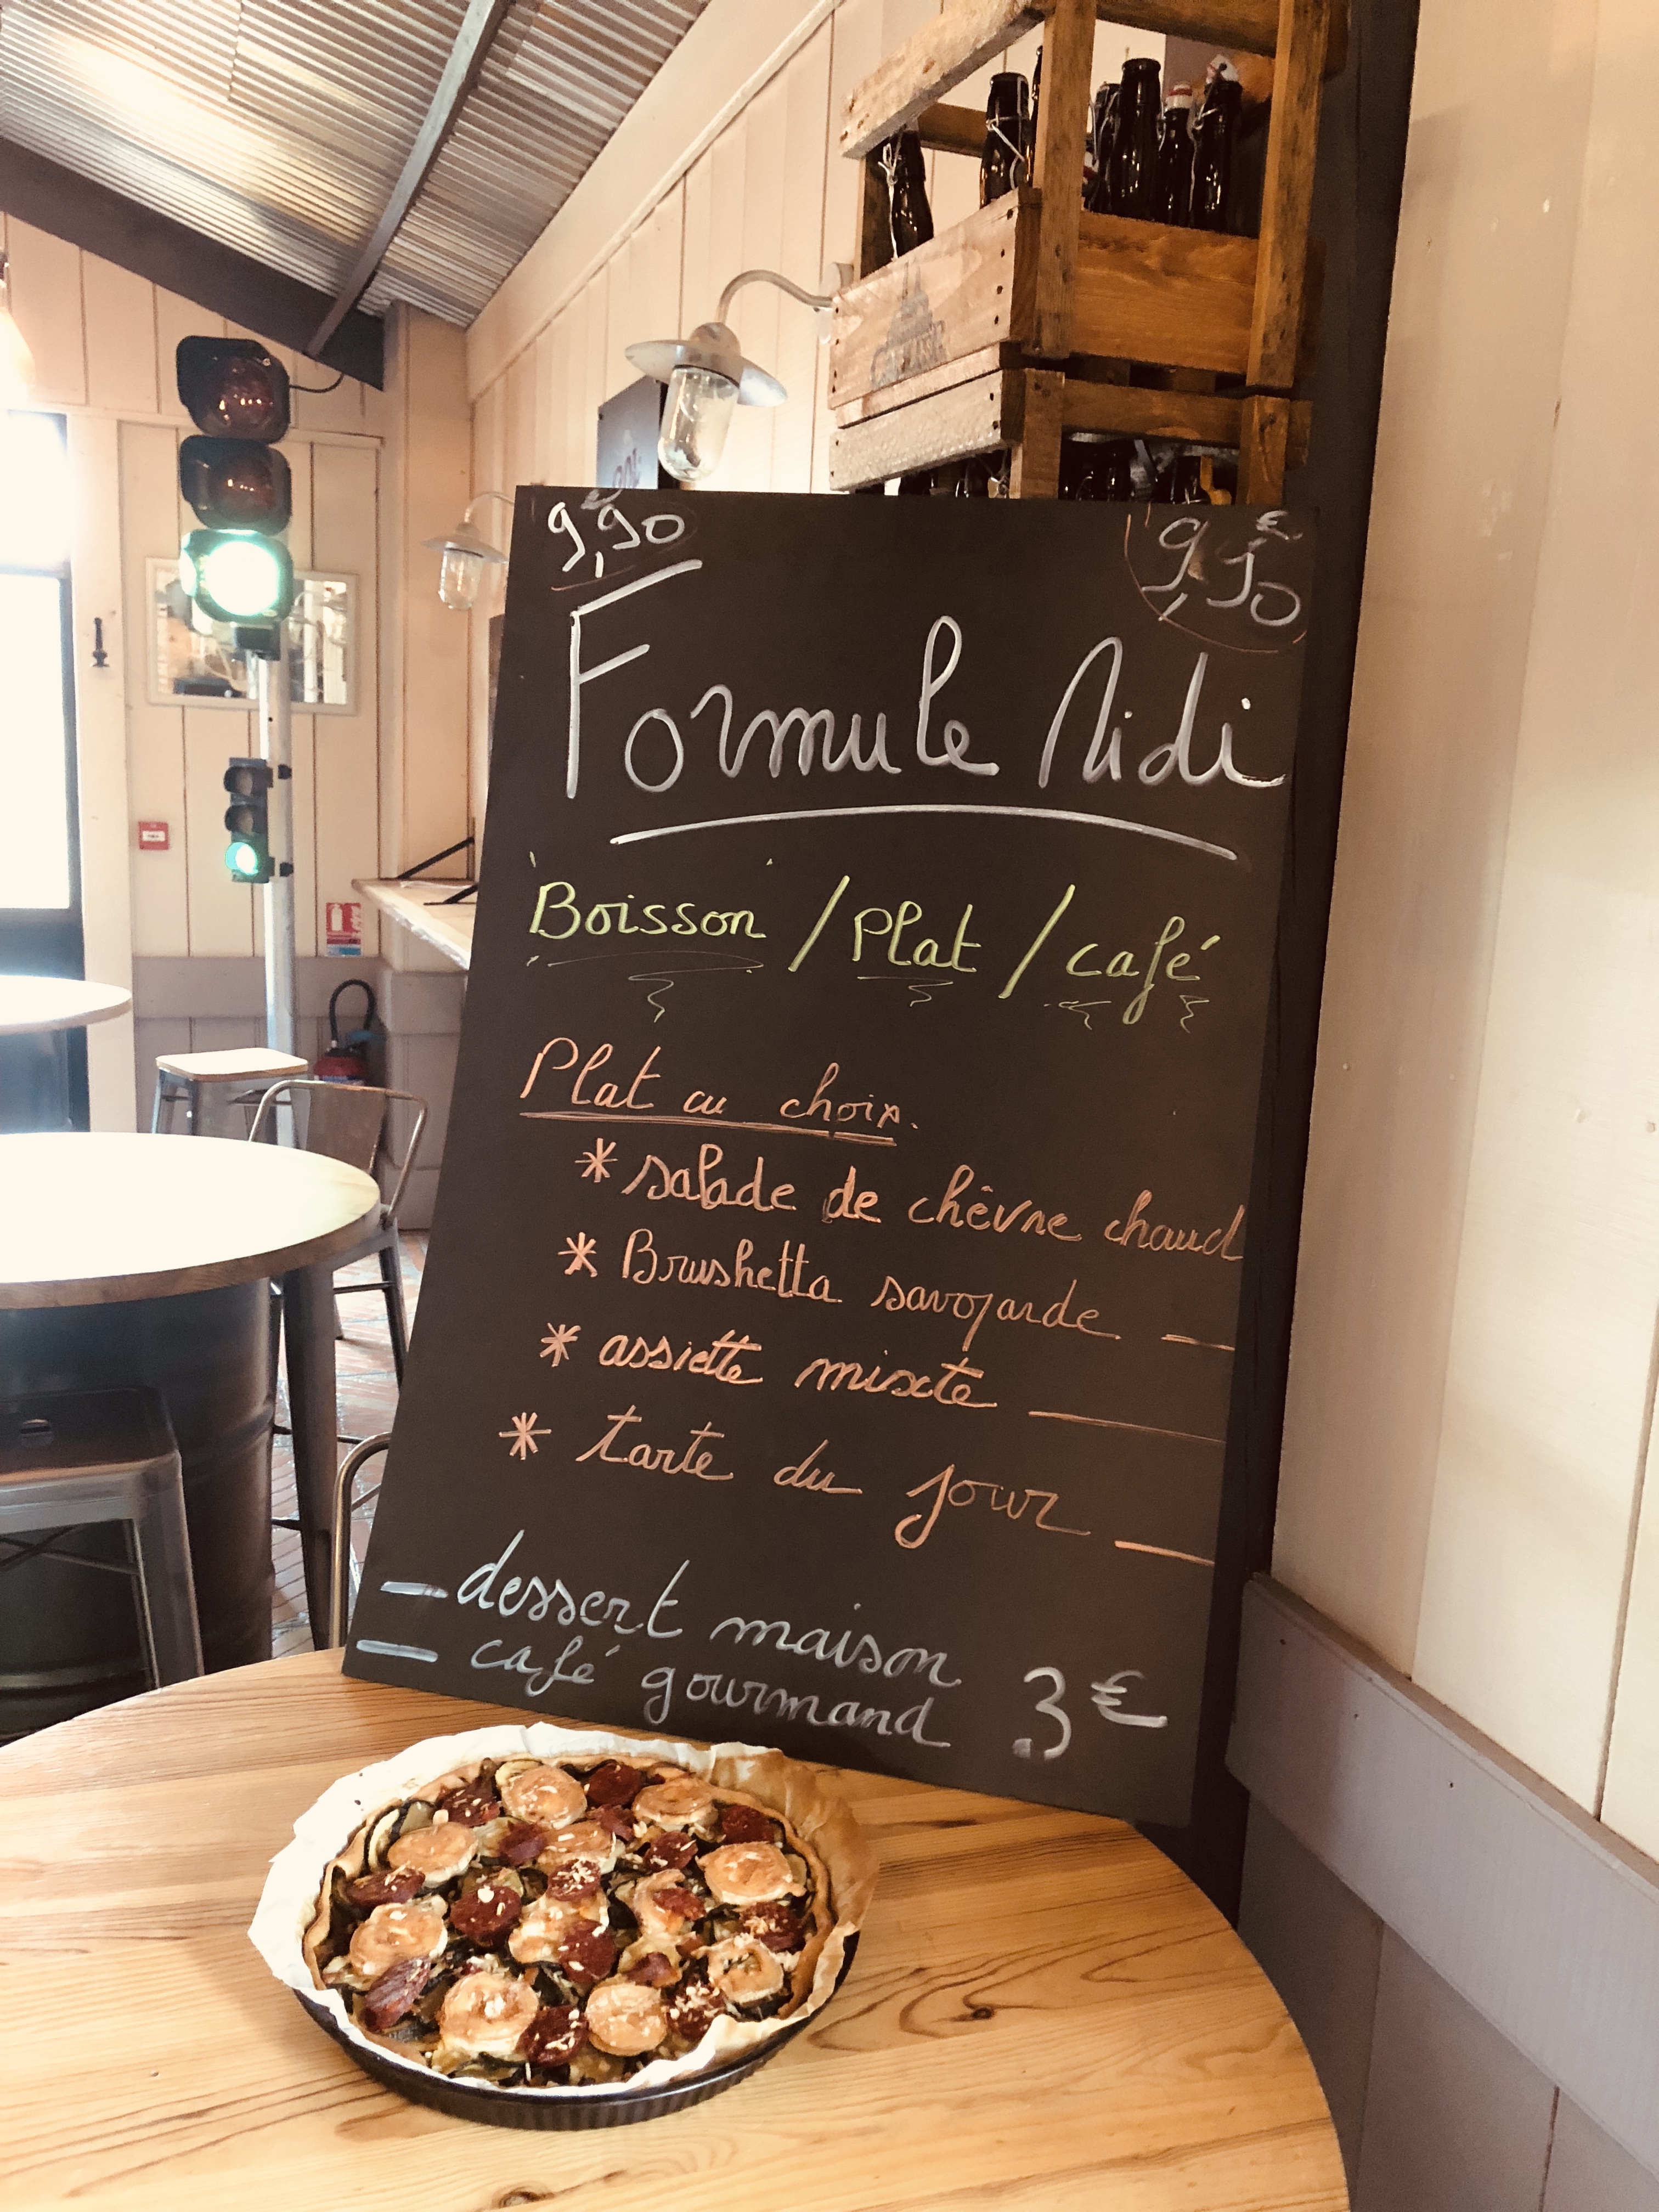 9,90
9,90€
Formule Midi
Boisson / Plat / café
Plat au choix.
* salade de chêvre chaud
* Brushetta savoyarde
* assiette mixte
* tarte du jour
— dessert maison
— café gourmand 3€